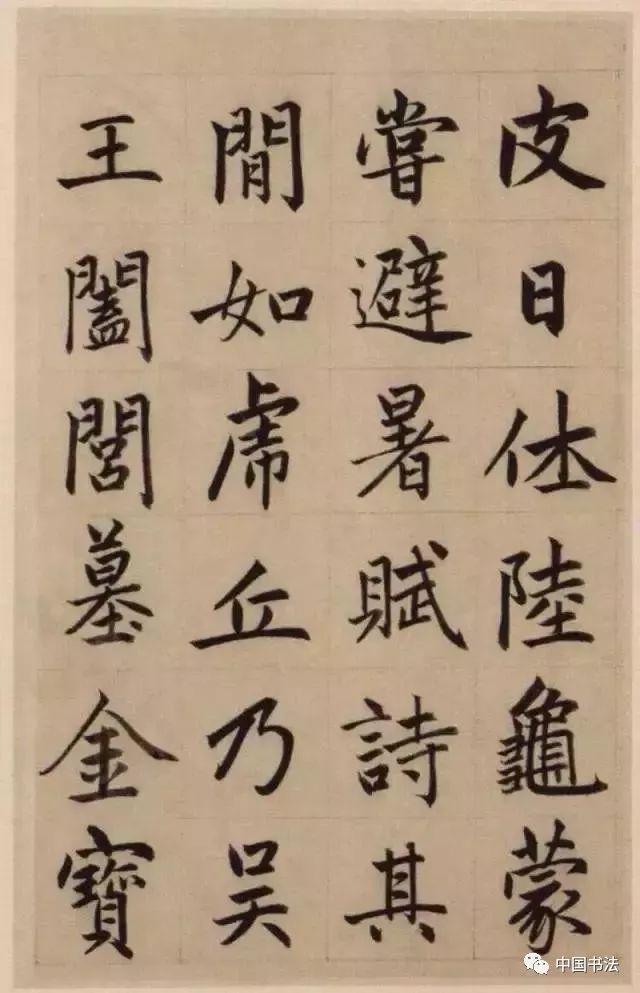 皮日休陸龜蒙
嘗避暑賦詩其
閒如虎丘乃吴
王闔閭墓金寶
中国书法